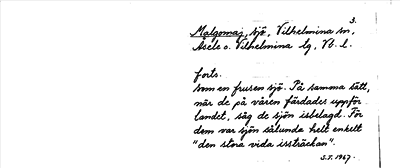 3.
Malgomaj, sjö, Vilhelmina sn,
Åsele o. Vilhelmina lg, Vb. l.
forts.
som en frusen sjö. På samma sätt,
när de på våren färdades uppför
landet, såg de sjön isbelagd. För
dem var sjön sålunda helt enkelt
"den stora vida issträckan".
S.S. 1967.